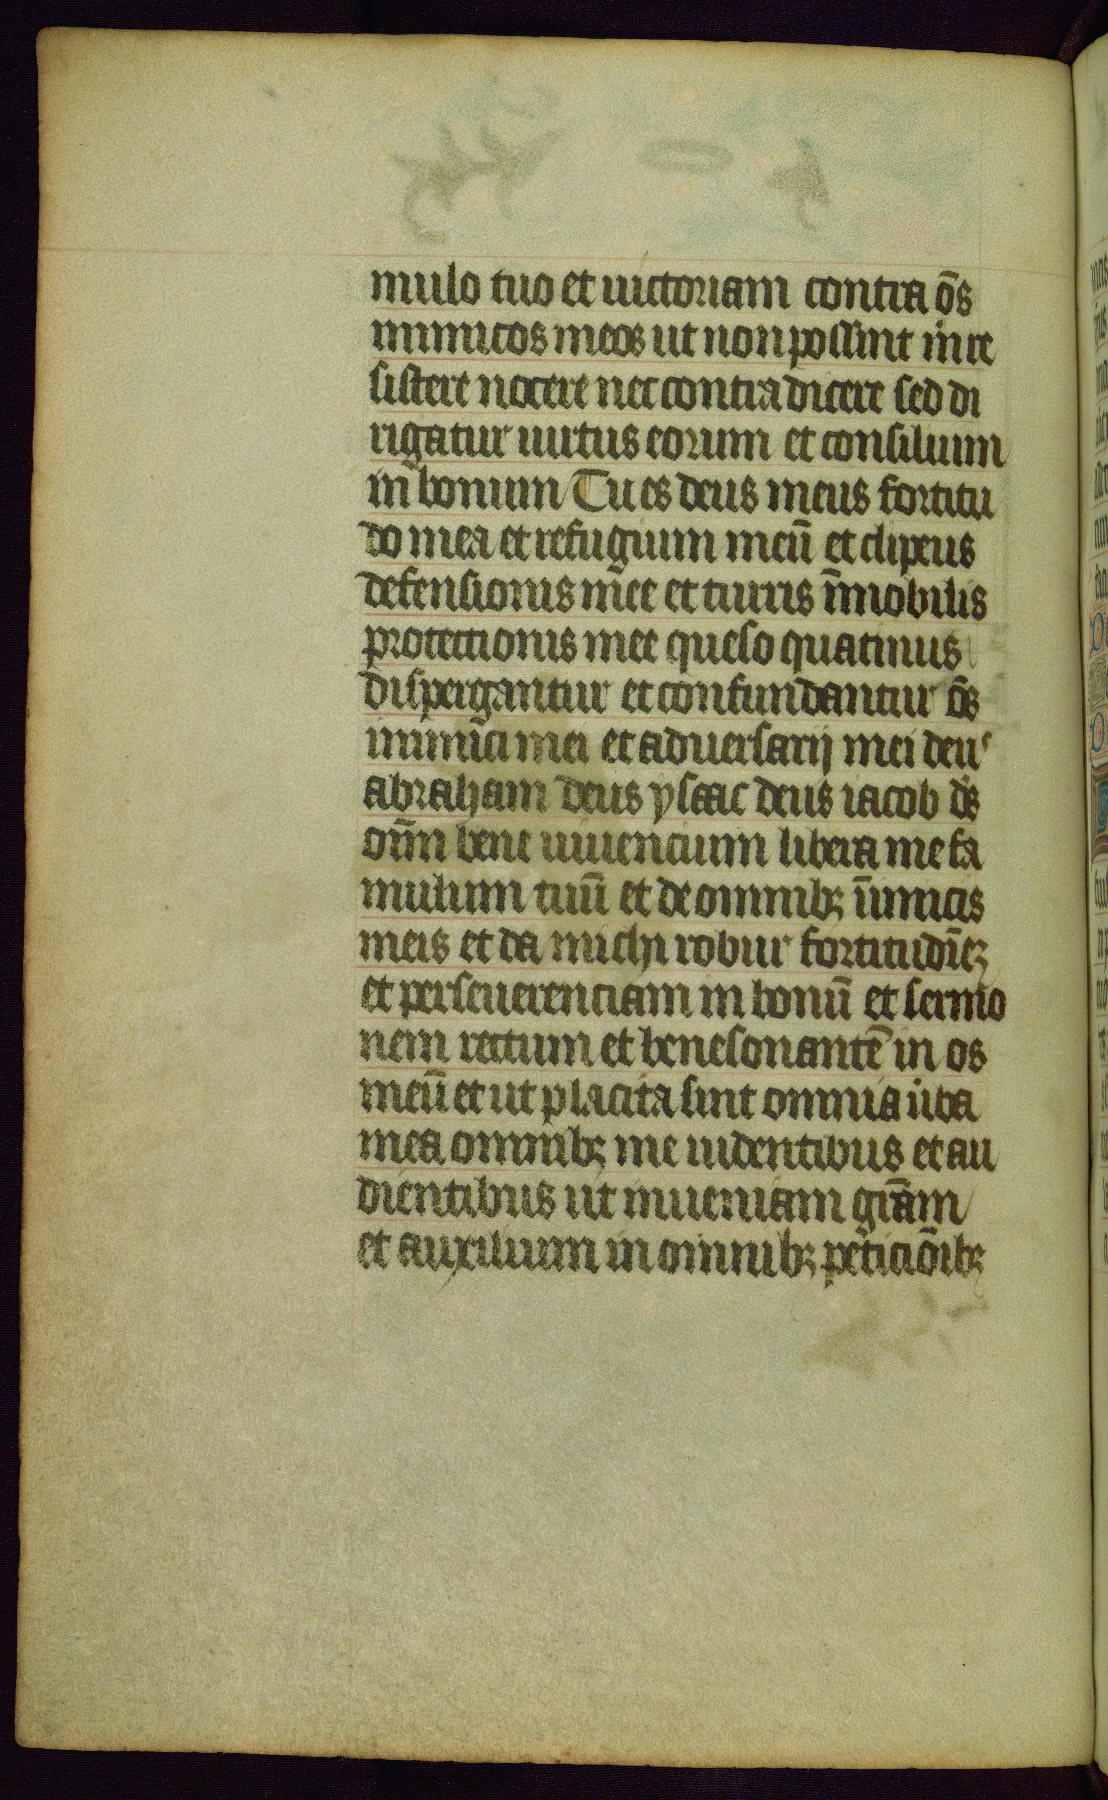 mulo tuo et uictoriam contra o̅s
inimicos meos ut non possint in re
sistere nocere nec contradicere sed di
rigatur uirtus eorum et consilium
in bonum Tu es deus meus fortitu
do mea et refugium meu̅ et clipeus
defensionis mee et turris i̅mobilis
protectionis mee queso quatinus
dispergantur et confundantur o̅s
inimici mei et aduersarij mei deus
abraham deus ysaac deus iacob d̅s
om̅n bene uiuencium libera me fa
mulum tuu̅ et de omnibꝫ i̅imicis
meis et da michi robur fortitudi̅eꝫ
et perseuerenciam in bonu̅ et sermo
nem rectum et benesonante̅ in os
meu̅ et ut placita sint omnia u̅ba
mea omnibꝫ me uidentibus et au
dientibus ut inueniam gra̅m
et auxilium in omnibꝫ peticio̅ibꝫ